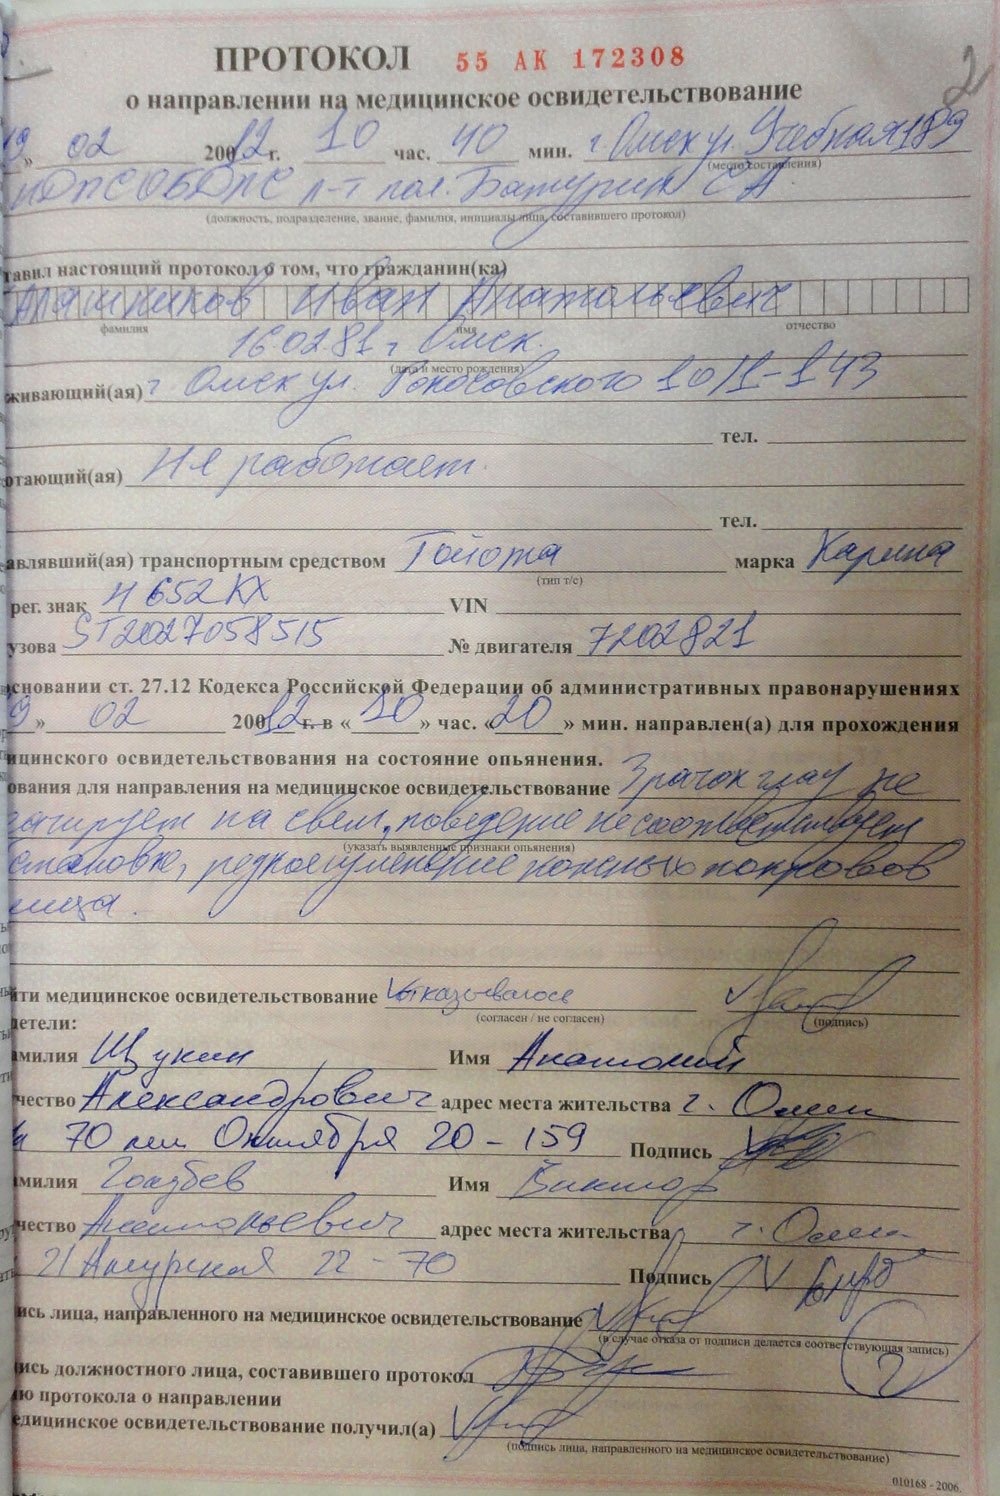 2
ПРОТОКОЛ 55 АК 172308
о направлении на медицинское освидетельствование
9 » 02 20012 г. 10 час. 40 мин. г. Омск ул. Учебная 189
(место составления)
ИДПС ОБДПС л-т пол. Батурин С А
(должность, подразделение, звание, фамилия, инициалы лица, составившего протокол)
тавил настоящий протокол о том, что гражданин(ка)
Иван Анатольевич
фамилия имя отчество
16.02.81 г Омск.
(дата и место рождения)
живающий(ая) г Омск ул. Рокосовского 10/1-143
тел.
отающий(ая) Не работает.
тел.
авлявший(ая) транспортным средством Тойота марка Карина
(тип т/с)
рег. знак Н 652 КХ VIN
узова ST2027058515 № двигателя 7202821
сновании ст. 27.12 Кодекса Российской Федерации об административных правонарушениях
9 » 02 20012 г. в « 10 » час. « 20 » мин. направлен(а) для прохождения
ицинского освидетельствования на состояние опьянения.
ования для направления на медицинское освидетельствование Зрачок глаз не
еагирует на свет, поведение не соответствует
(указать выявленные признаки опьянения)
становке, резкое изменение кожных покровов
лица.
йти медицинское освидетельствование отказываюсь
(согласен / не согласен) (подпись)
детели:
амилия Щукин Имя Анатолий
чество Александрович адрес места жительства г. Омск
70 лет Октября 20 - 159 Подпись
амилия Голубев Имя Виктор
чество Анатольевич адрес места жительства г. Омск
21 Амурская 22 - 70 Подпись
ись лица, направленного на медицинское освидетельствование
(в случае отказа от подписи делается соответствующая запись)
ись должностного лица, составившего протокол
ю протокола о направлении
едицинское освидетельствование получил(а)
(подпись лица, направленного на медицинское освидетельствование)
010168 - 2006.